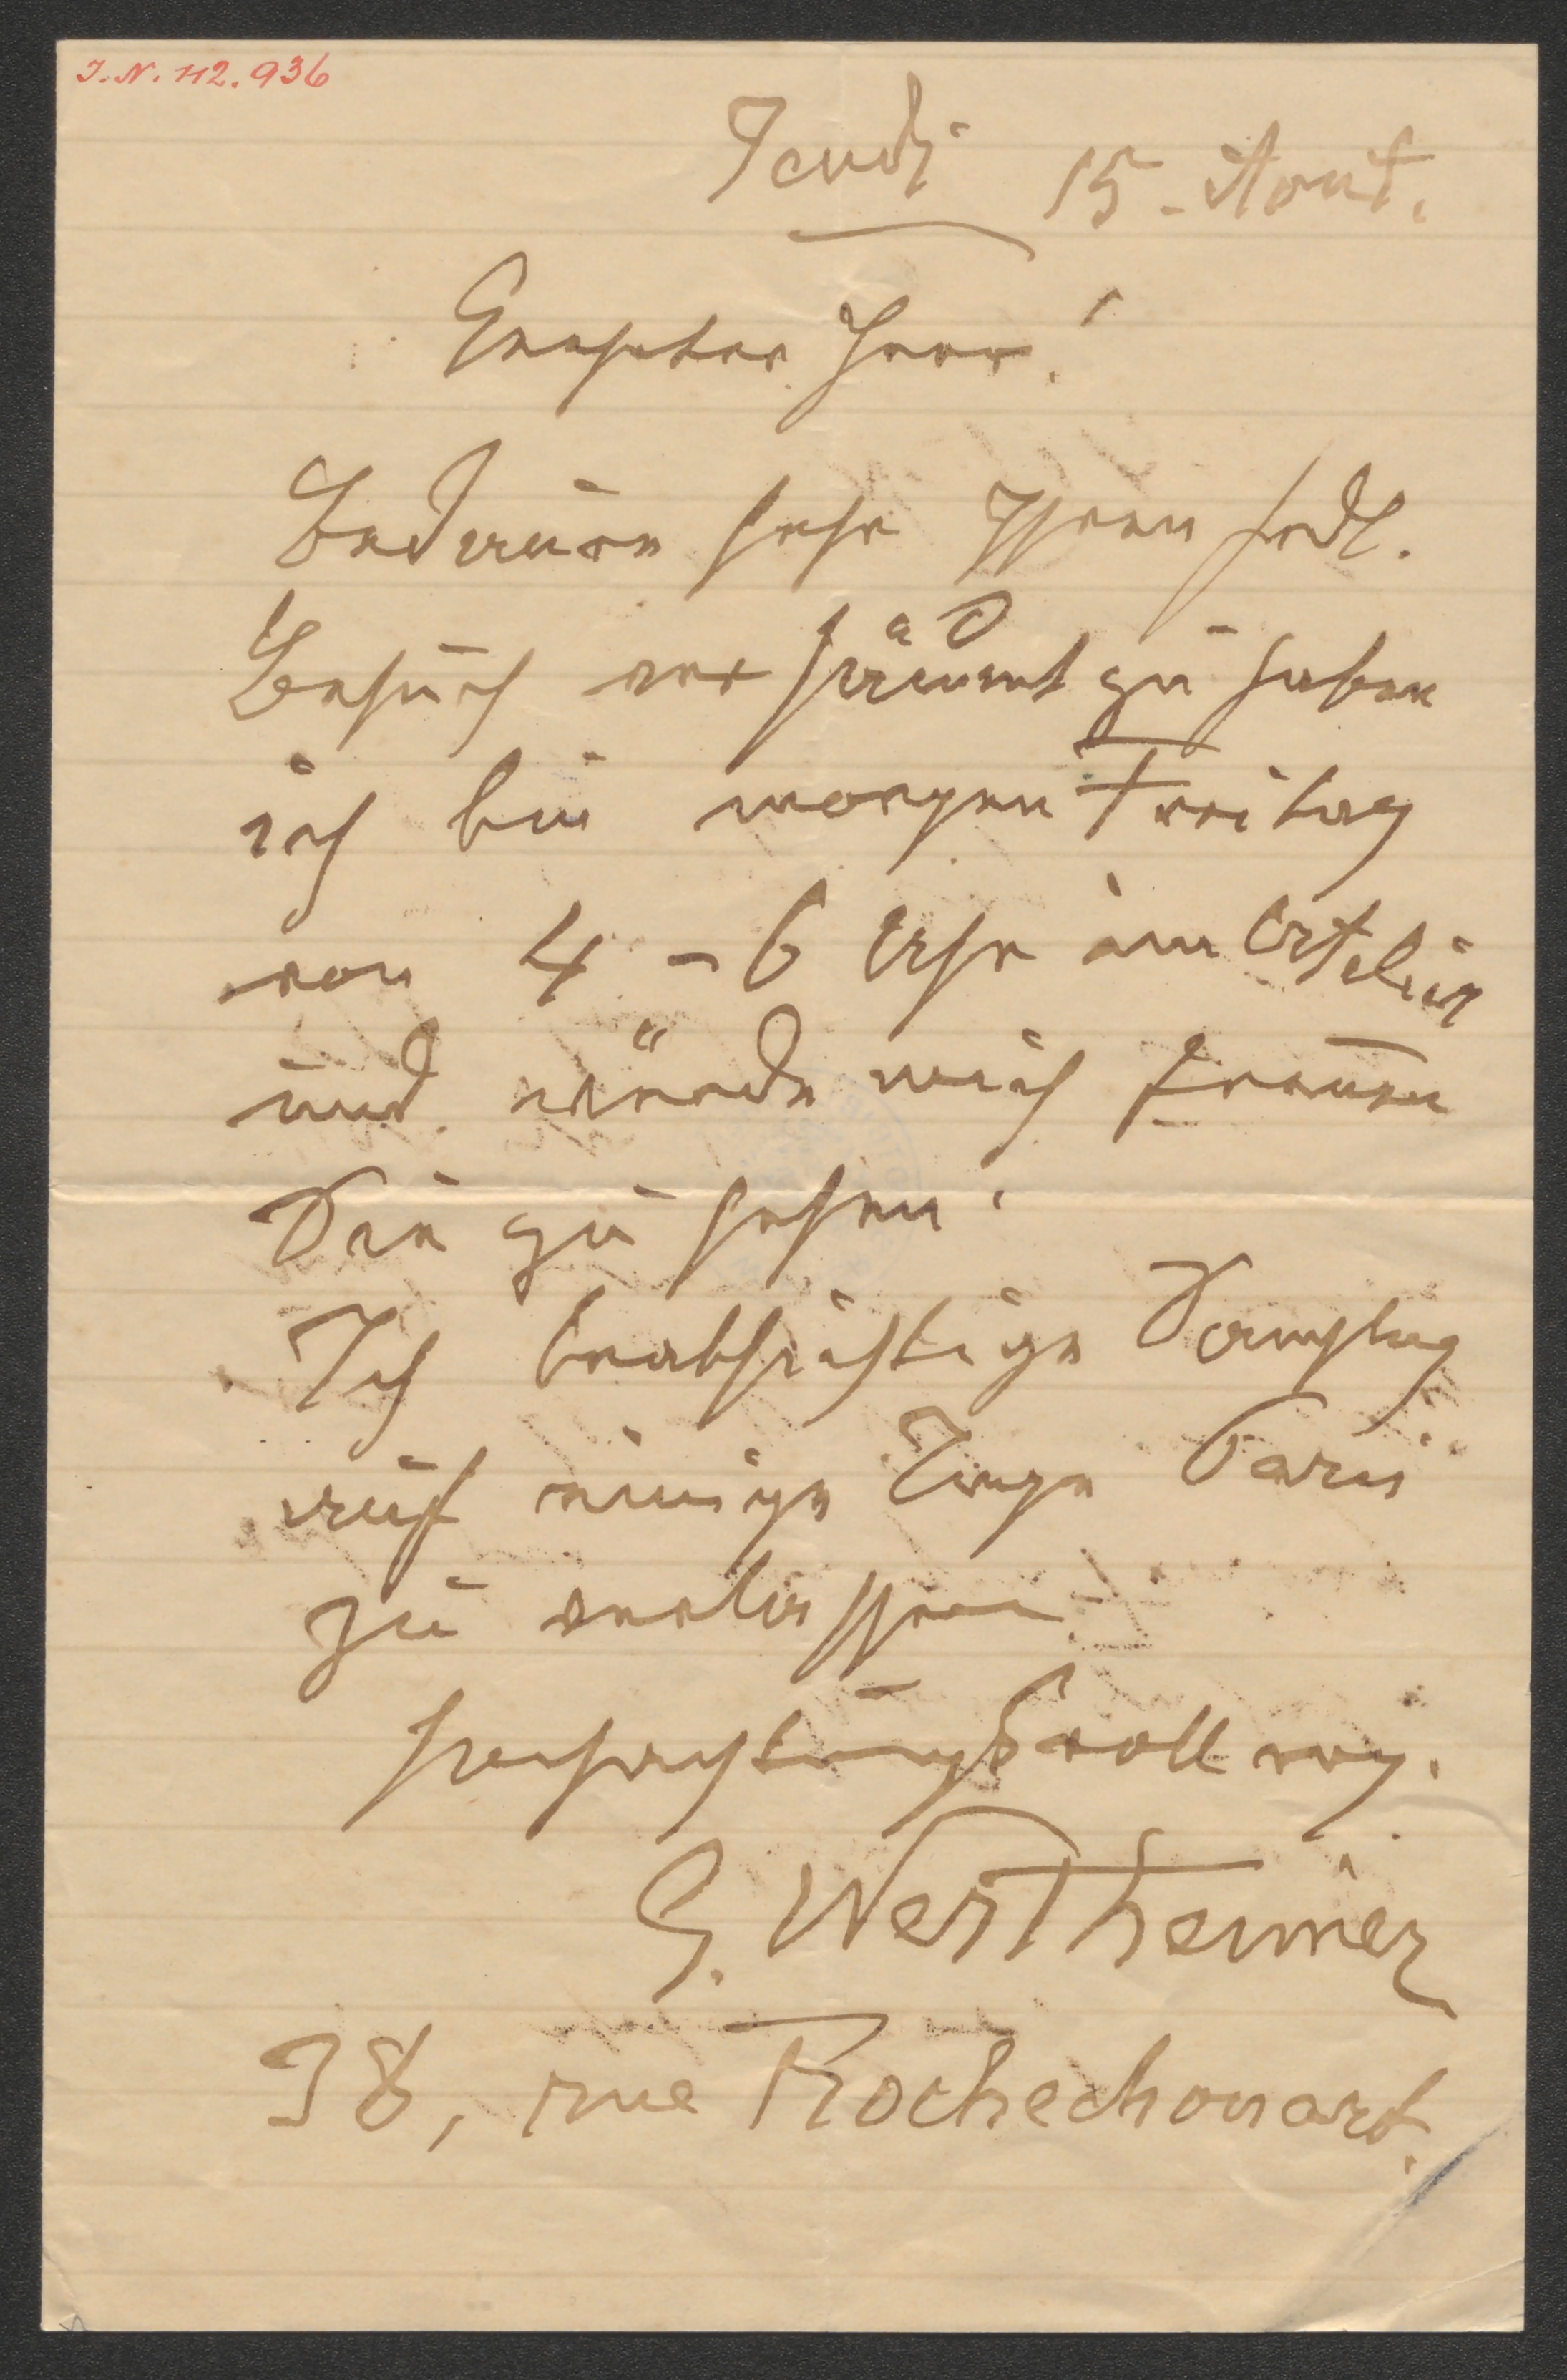 I.N. 112.936
Jeudi 15. Aout.
Geehrter Herr!
Bedaure sehr Ihren frdl.
Besuch versäumt zu haben
ich bin morgen Freitag
von 4 - 6 Uhr im Atelier
und würde mich freuen
Sie zu sehen.
Ich beabsichtige Samstag
auf einige Tage Paris
zu verlassen
hochachtungsvoll
G. Wertheimer
38, rue Rochechouart.